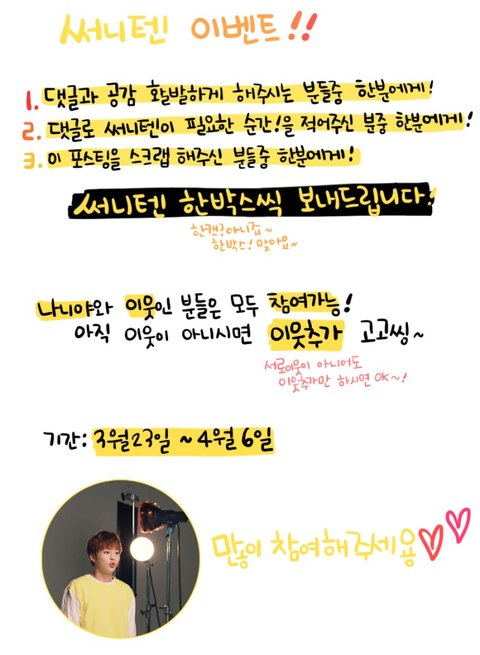 써니텐 이벤트!!
1. 댓글과 공감 활발하게 해주시는 분들중 한분에게!
2. 댓글로 써니텐이 필요한 순간!을 적어주신 분중 한분에게!
3. 이 포스팅을 스크랩 해주신 분들중 한분에게!
써니텐 한박스씩 보내드립니다!
한캔?아니죠~
한박스! 맞아요~
나니야와 이웃인 분들은 모두 참여가능!
아직 이웃이 아니시면 이웃추가 고고씽~
서로이웃이 아니어도
이웃추가만 하시면 OK~!
기간: 3월23일 ~ 4월 6일
많이 참여해주세용